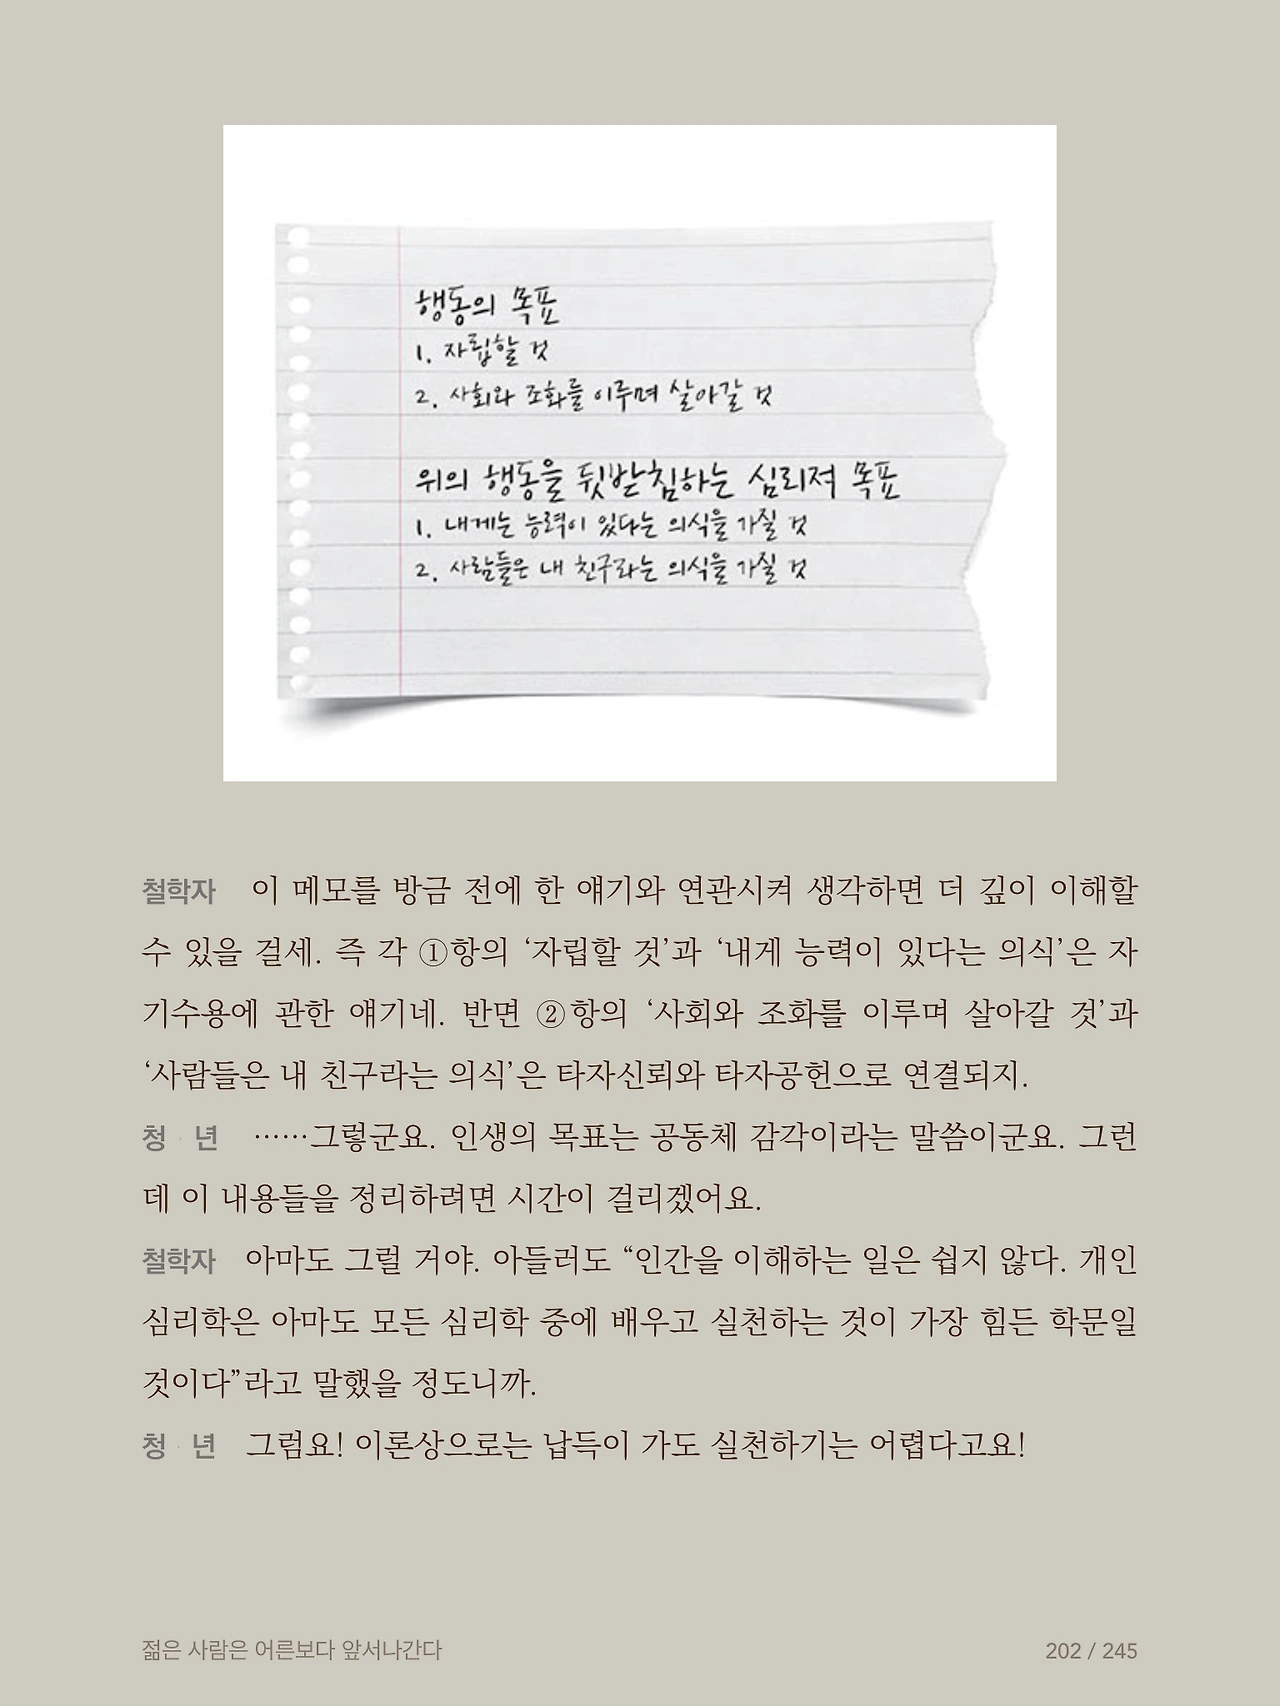 행동의 목표
1. 자립할 것
2. 사회와 조화를 이루며 살아갈 것
위의 행동을 뒷받침하는 심리적 목표
1. 내게는 능력이 있다는 의식을 가질 것
2. 사람들은 내 친구라는 의식을 가질 것
철학자 이 메모를 방금 전에 한 얘기와 연관시켜 생각하면 더 깊이 이해할
수 있을 걸세. 즉 각 ①항의 ‘자립할 것’과 ‘내게 능력이 있다는 의식’은 자
기수용에 관한 얘기네. 반면 ②항의 ‘사회와 조화를 이루며 살아갈 것’과
‘사람들은 내 친구라는 의식’은 타자신뢰와 타자공헌으로 연결되지.
청 년 ……그렇군요. 인생의 목표는 공동체 감각이라는 말씀이군요. 그런
데 이 내용들을 정리하려면 시간이 걸리겠어요.
철학자 아마도 그럴 거야. 아들러도 “인간을 이해하는 일은 쉽지 않다. 개인
심리학은 아마도 모든 심리학 중에 배우고 실천하는 것이 가장 힘든 학문일
것이다”라고 말했을 정도니까.
청 년 그럼요! 이론상으로는 납득이 가도 실천하기는 어렵다고요!
젊은 사람은 어른보다 앞서나간다
202 / 245